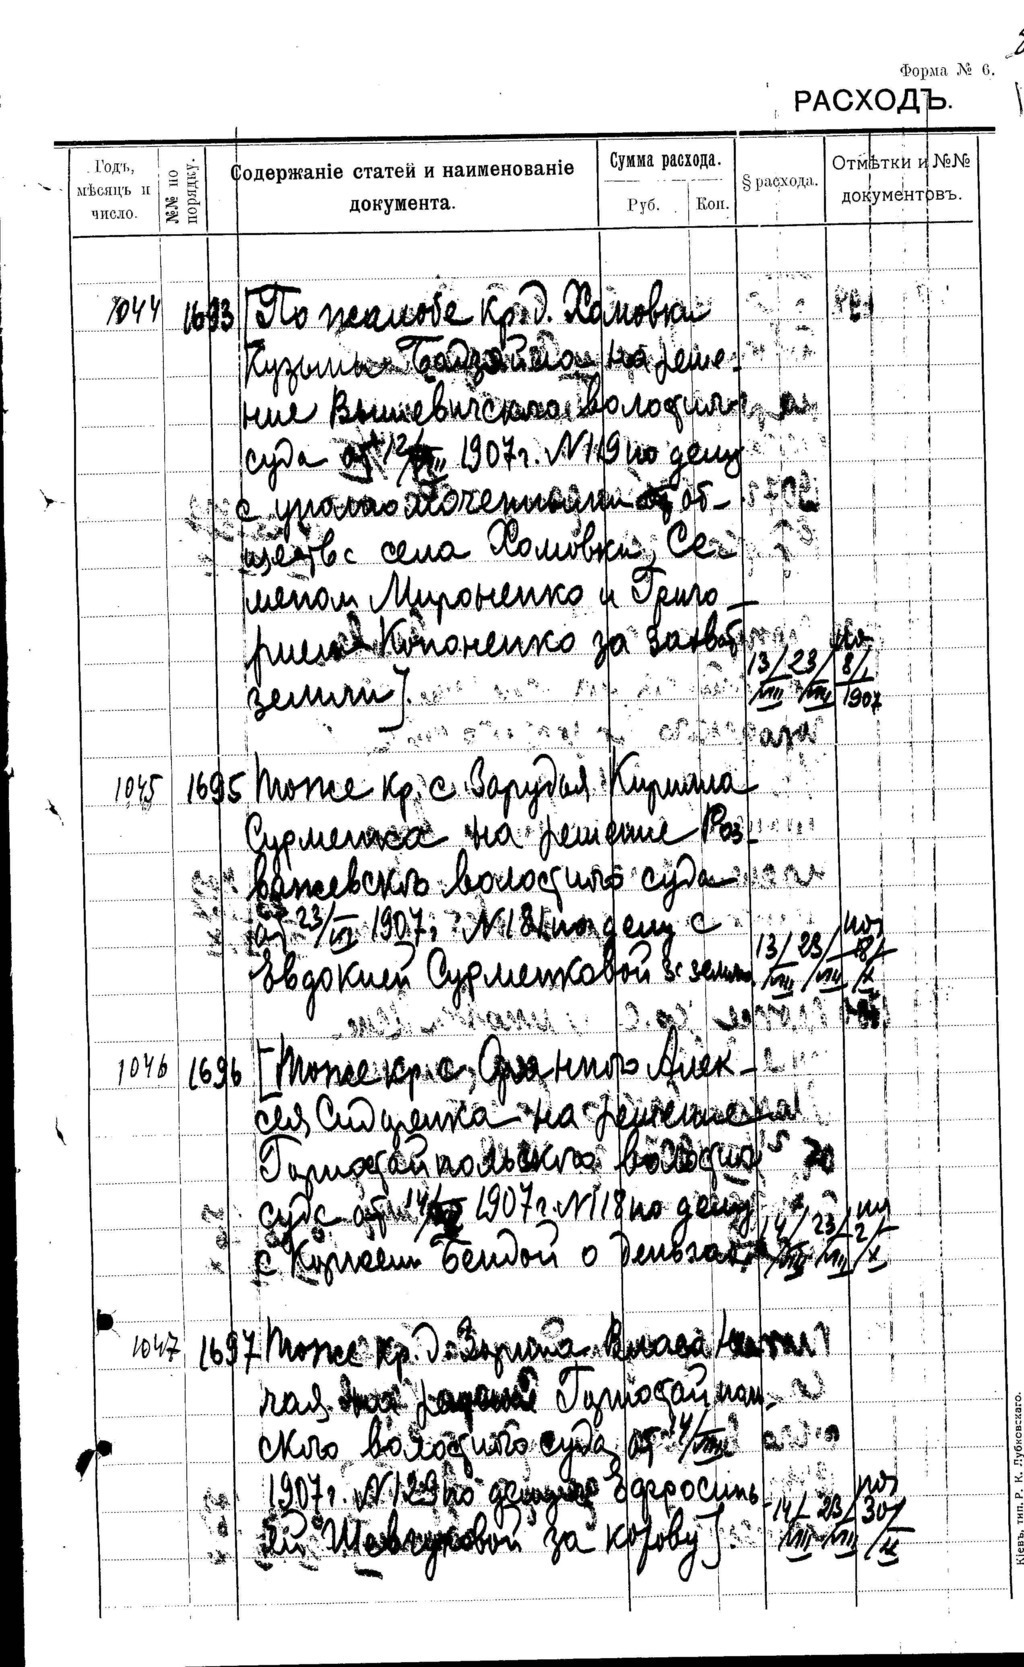 Форма № 6.
РАСХОДЪ.
Годъ, мѣсяцъ и число.
№№ по порядку.
Содержаніе статей и наименованіе документа.
Сумма расхода.
Руб.
Коп.
§ расхода.
Отмѣтки и №№ документовъ.
1044 1693 [По жалобе кр. д. Хамовки
Кузьмы на реше-
ние Вышевичского волостного
суда от 12/VII 1907 г. N 119 по делу
с уполномоченными от об-
щества села Хомовки, Се-
меном Мироненко и Григо-
рием Кононенко за захват
земли].
13/VIII 23/VIII 8/ 1907
1045 1695 Тоже кр. с Зарудья Кирилла
Сурменка на решение Роз-
важевского волостного суда
от 23/VI 1907 г. N 181 по делу с
Евдокией Сурменковой за землю
13/VIII 23/VIII 18/X
1046 1696 [Тоже кр. с. Оранного Алек-
сея Сидоренка на решение
Горностайпольского волостного
суда от 14/ 1907 г. N 118 по делу
с Бендой о деньгах
14/VIII 23/VIII 2/X
1047 1697 Тоже кр. д. Зорина Власа
Горностайполь-
ского волостного суда от 14/VIII
1907 г. N 129 по делу с Ефросинь-
ей Шевчуковой за корову].
14/VIII 23/VIII 30/
Кіевъ, тип. Р. К. Лубковскаго.